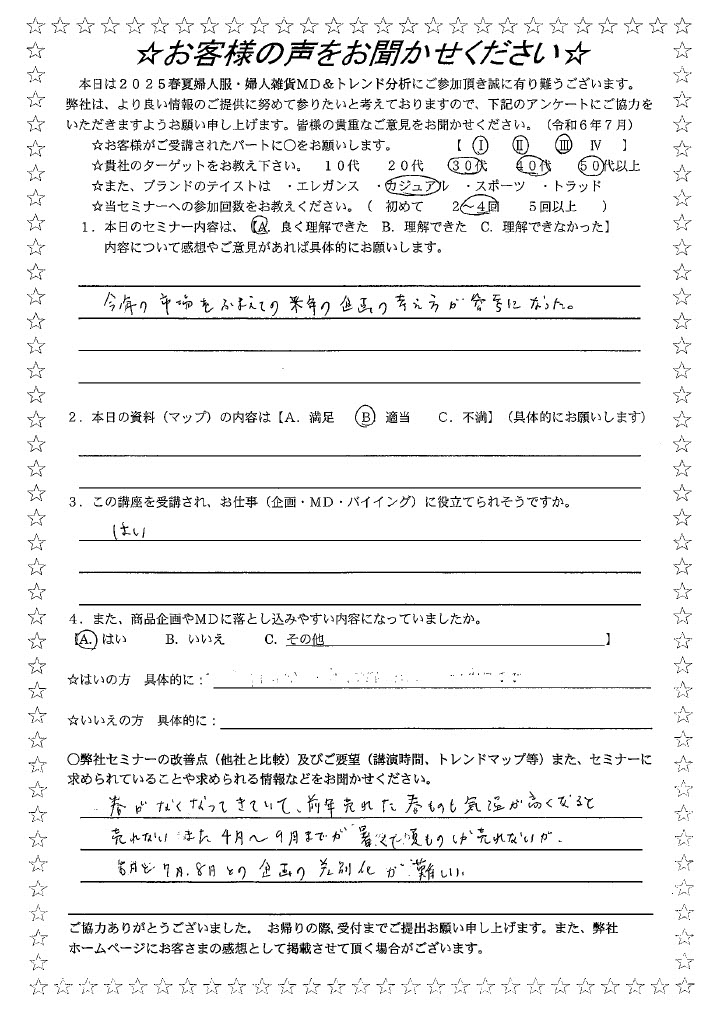 ☆お客様の声をお聞かせください☆
本日は2025春夏婦人服・婦人雑貨MD&トレンド分析にご参加頂き誠に有り難うございます。
弊社は、より良い情報のご提供に努めて参りたいと考えておりますので、下記のアンケートにご協力を
いただきますようお願い申し上げます。皆様の貴重なご意見をお聞かせください。（令和6年7月）
☆お客様がご受講されたパートに〇をお願いします。 【 Ⅰ Ⅱ Ⅲ Ⅳ 】
☆貴社のターゲットをお教え下さい。 10代 20代 30代 40代 50代以上
☆また、ブランドのテイストは ・エレガンス ・カジュアル ・スポーツ ・トラッド
☆当セミナーへの参加回数をお教えください。（ 初めて 2～4回 5回以上 ）
1．本日のセミナー内容は、【A. 良く理解できた B. 理解できた C. 理解できなかった】
内容について感想やご意見があれば具体的にお願いします。
今年の市場をふまえての来年の企画の考え方が参考になった。
2．本日の資料（マップ）の内容は【A．満足 B 適当 C．不満】（具体的にお願いします）
3．この講座を受講され、お仕事（企画・MD・バイイング）に役立てられそうですか。
はい
4．また、商品企画やMDに落とし込みやすい内容になっていましたか。
【A. はい B. いいえ C. その他 】
☆はいの方 具体的に：
☆いいえの方 具体的に：
〇弊社セミナーの改善点（他社と比較）及びご要望（講演時間、トレンドマップ等）また、セミナーに
求められていることや求められる情報などをお聞かせください。
春がなくなってきていて、前年売れた春ものも気温が高くなると
売れない また4月～9月までが暑くて夏ものしか売れないが、
5月と7月、8月との企画の差別化が難しい
ご協力ありがとうございました。 お帰りの際、受付までご提出お願い申し上げます。また、弊社
ホームページにお客さまの感想として掲載させて頂く場合がございます。